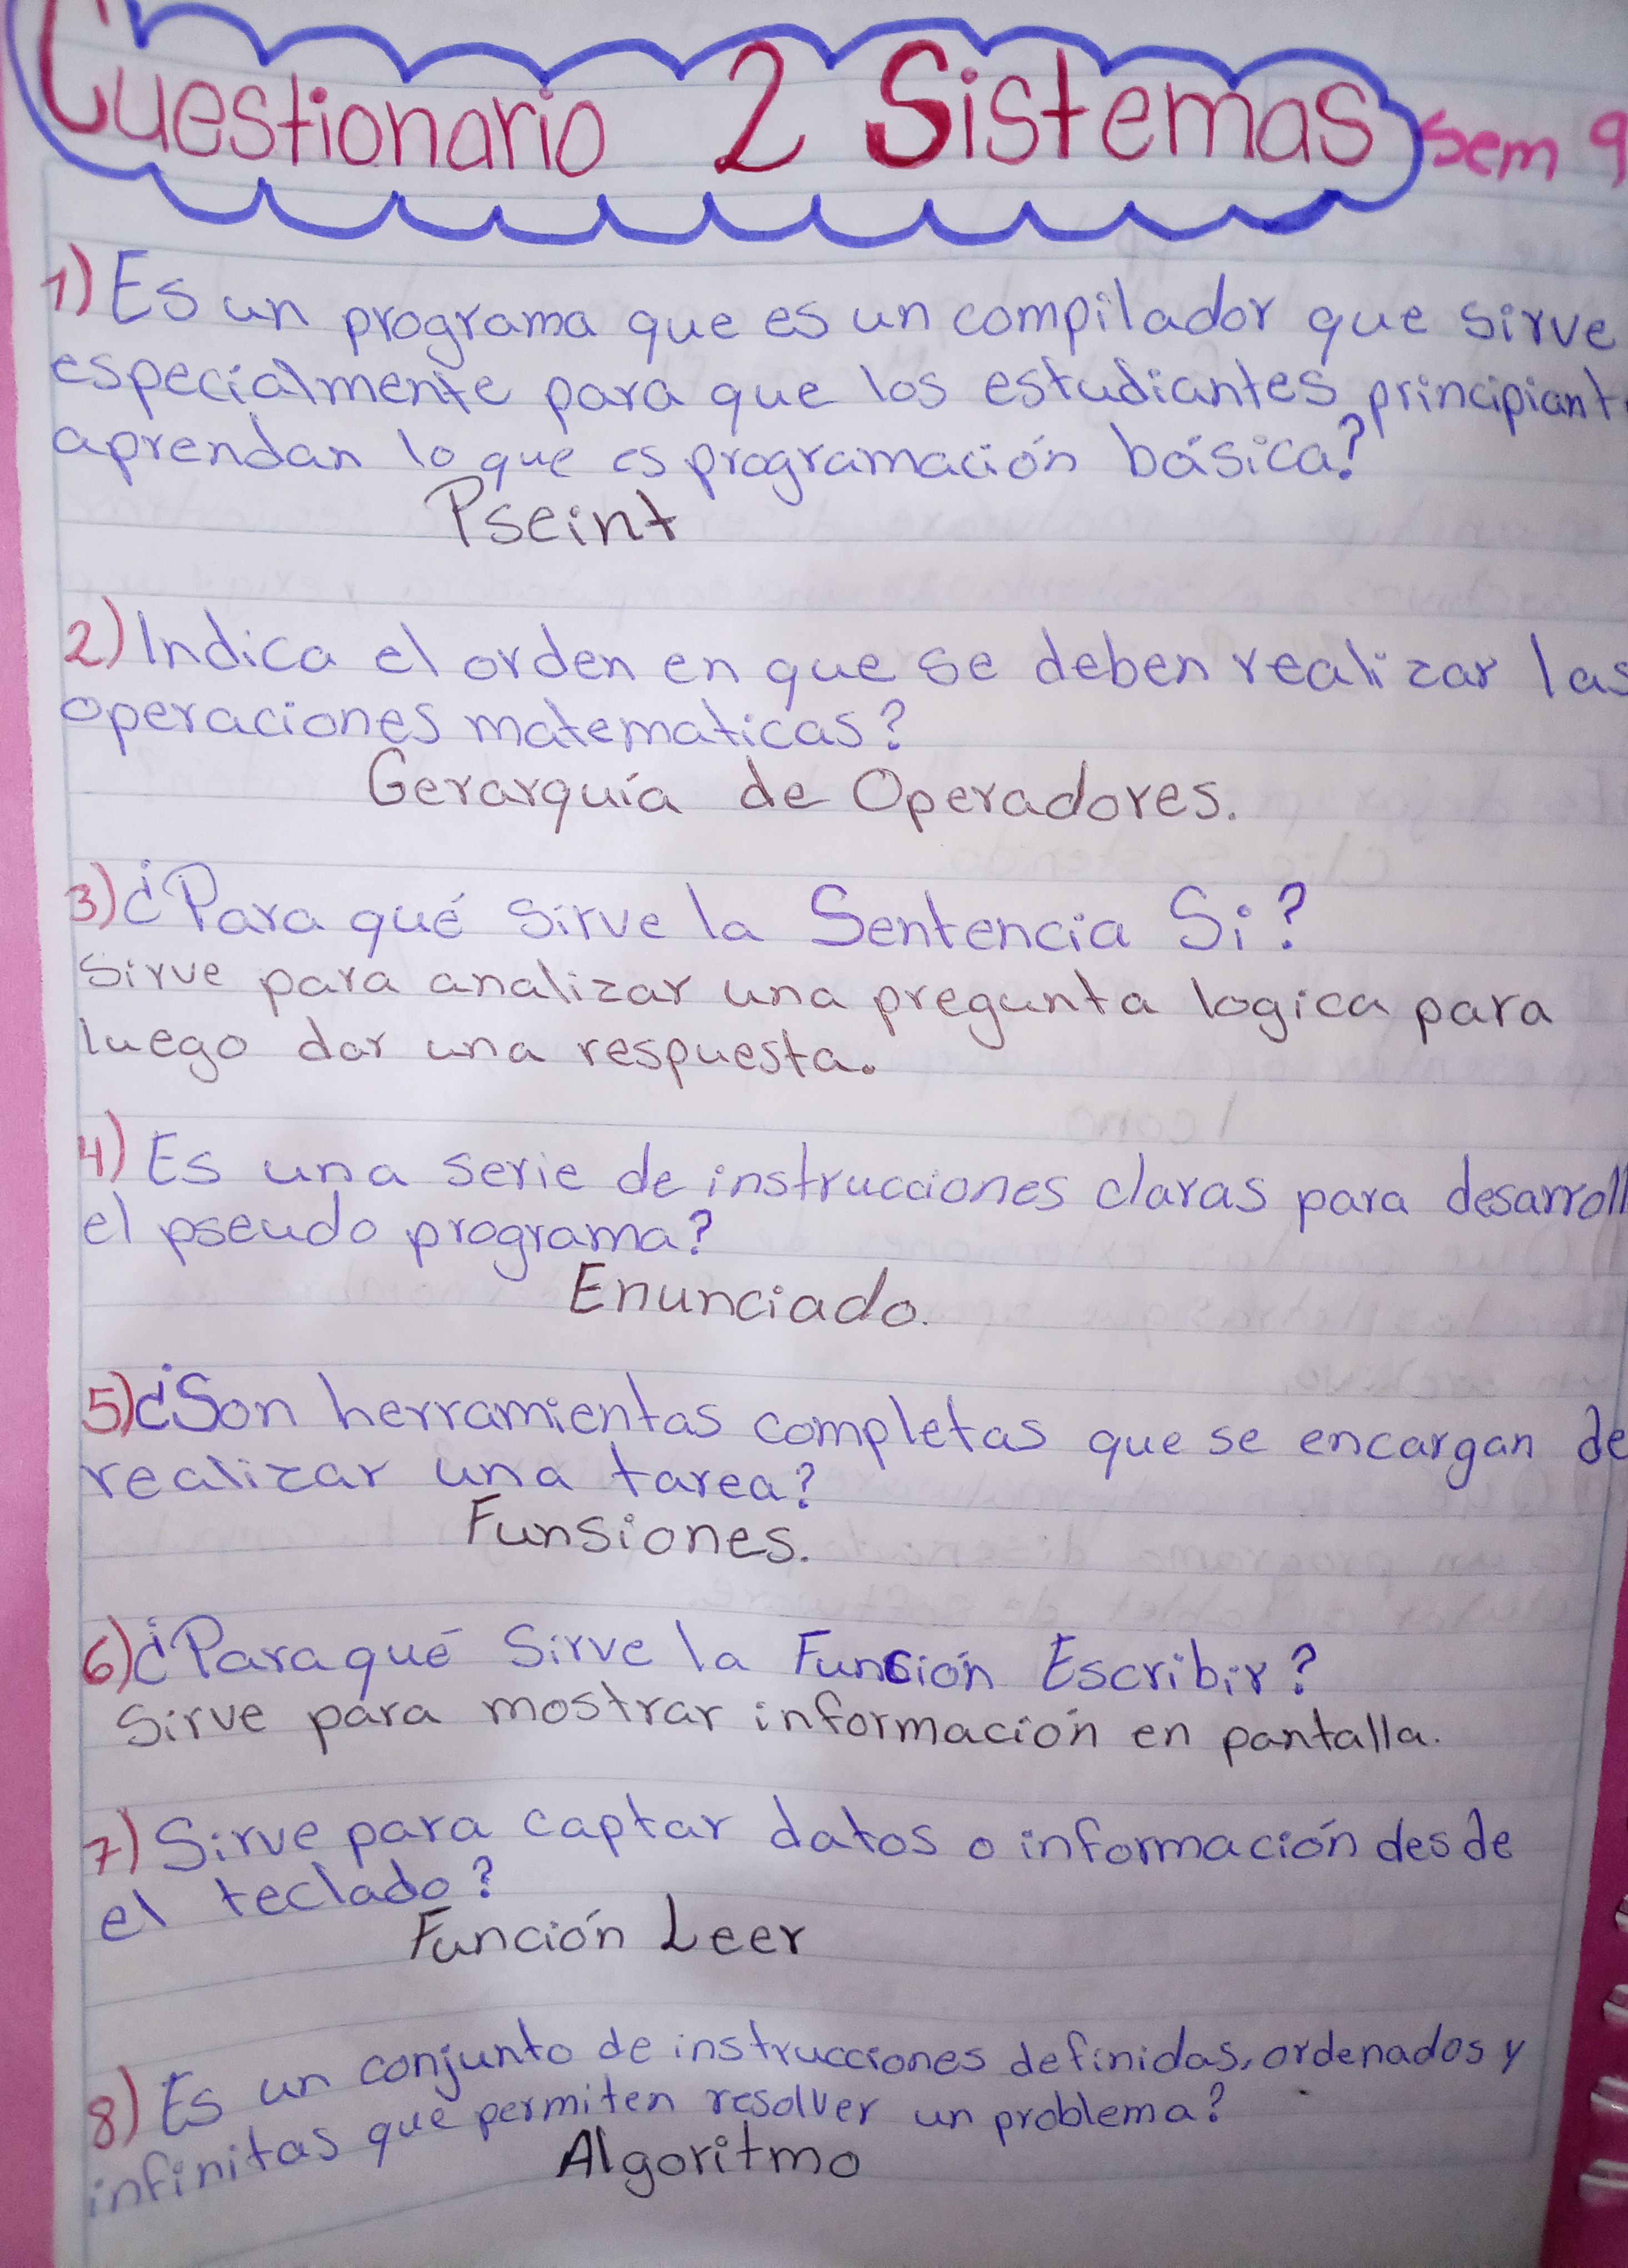 Cuestionario 2 Sistemas Sem 9
1) Es un programa que es un compilador que sirve
especialmente para que los estudiantes principiant
aprendan lo que es programación básica?
Pseint
2) Indica el orden en que se deben realizar las
operaciones matematicas?
Gerarquía de Operadores.
3) ¿Para qué sirve la Sentencia Si?
Sirve para analizar una pregunta logica para
luego dar una respuesta.
4) Es una serie de instrucciones claras para desarroll
el pseudo programa?
Enunciado.
5) ¿Son herramientas completas que se encargan de
realizar una tarea?
Funsiones.
6) ¿Para qué Sirve la Función Escribir?
Sirve para mostrar información en pantalla.
7) Sirve para captar datos o información desde
el teclado?
Función Leer
8) Es un conjunto de instrucciones definidas, ordenados y
infinitas que permiten resolver un problema?
Algoritmo